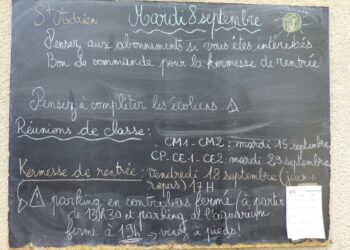 St Adrien
Mardi 8 septembre
Pensez aux abonnements si vous êtes intéressés
Bon de commande pour la kermesse de rentrée
Pensez à compléter les écoliens.
Réunions de classe :
CM1-CM2 : mardi 15 septembre
CP-CE1-CE2 mardi 29 septembre
Kermesse de rentrée : vendredi 18 septembre (jeux+
repas) 17H
! parking en contre bas fermé (à partir
de 13h30 et parking
fermé à 19h → venez à pieds!